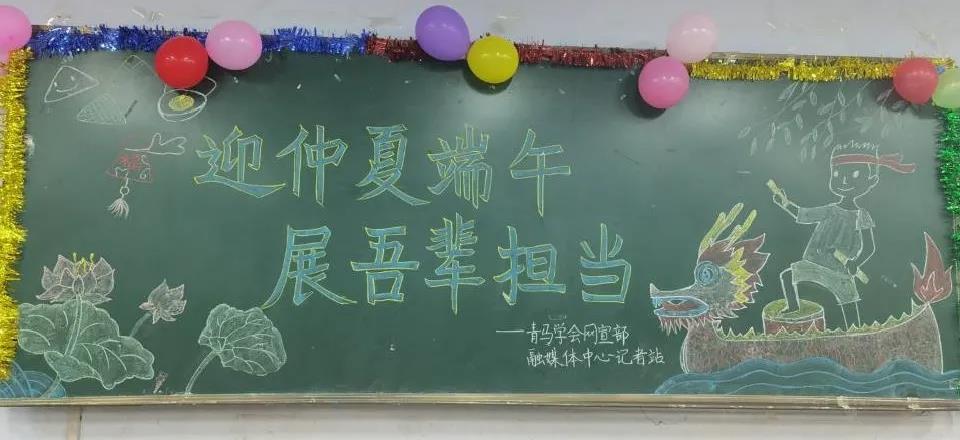 迎仲夏端午
展吾辈担当
——青马学会网宣部
融媒体中心记者站